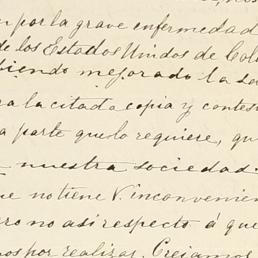 por la grave enfermedad
de los Estados Unidos de Col
biendo mejorado la sa
ra la citada copia y contes
a parte que lo requiere, qu
nuestra sociedad.
no tiene V. inconvenien
ro no asi respecto á que
nos por realizar. Creiamos